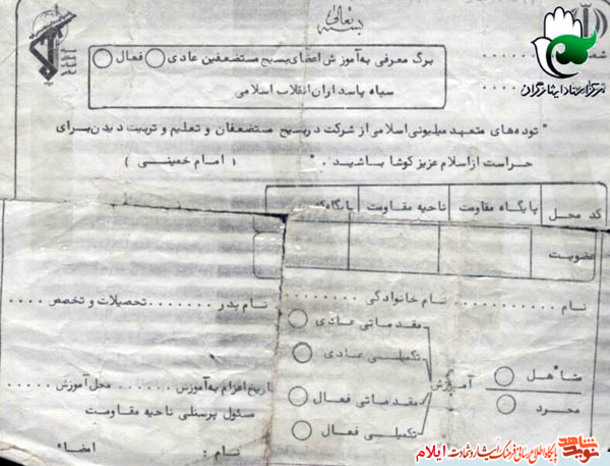 بسمه تعالی
سپاه پاسداران انقلاب اسلامی
شما
مرکز اسناد ایثارگران
برگ معرفی به آموزش اعضای بسیج مستضعفین عادی فعال
سپاه پاسداران انقلاب اسلامی
" توده‌های متعهد میلیونی اسلامی از شرکت در بسیج مستضعفان و تعلیم و تربیت دیدن برای
حراست از اسلام عزیز کوشا باشید . " ( امام خمینی )
کد محل پایگاه مقاومت ناحیه مقاومت
عضویت
نام .......... نام خانوادگی ......... نام پدر ........ تحصیلات و تخصص ....
متأهل
مجرد
آموزش
مقدماتی عادی
تکمیلی عادی
مقدماتی فعال
تکمیلی فعال
تاریخ اعزام به آموزش ....... محل آموزش .......
مسئول پرسنلی ناحیه مقاومت
نام : امضاء
نوید شاهد
پایگاه اطلاع رسانی فرهنگ ایثار و شهادت ایلام